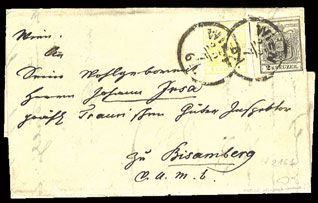 Wien.
An
Seine Wohlgeboren
Herrn Johann Jesa
gräfl Traunischen Güter Inspektor
zu Bisamberg
WIEN
WIEN
2 KREUZER